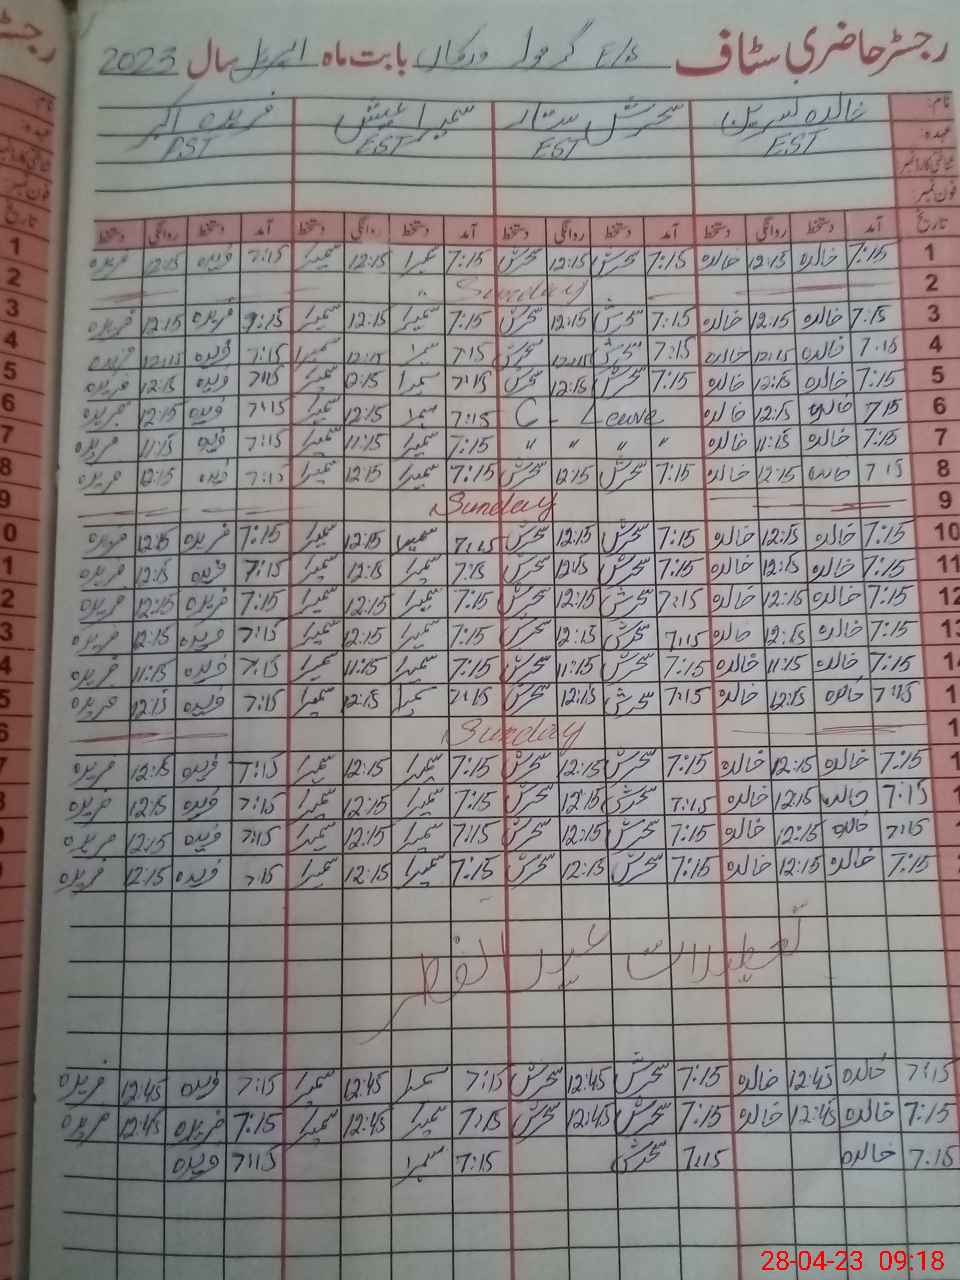 رجسٹر حاضری سٹاف E/S بابت ماہ اپریل سال 2023
نام: خالدہ نسرین سحرش ستار سمیرا فریدہ اکبر
عہدہ: EST EST EST EST
فون نمبر
تاریخ آمد دستخط روانگی دستخط آمد دستخط روانگی دستخط آمد دستخط روانگی دستخط آمد دستخط روانگی دستخط
1 7:15 خالدہ 12:15 خالدہ 7:15 سحرش 12:15 سحرش 7:15 سمیرا 12:15 سمیرا 7:15 فریدہ 12:15 فریدہ
2 Sunday
3 7:15 خالدہ 12:15 خالدہ 7:15 سحرش 12:15 سحرش 7:15 سمیرا 12:15 سمیرا 7:15 فریدہ 12:15 فریدہ
4 7:15 خالدہ 12:15 خالدہ 7:15 سحرش 12:15 سحرش 7:15 سمیرا 12:15 سمیرا 7:15 فریدہ 12:15 فریدہ
5 7:15 خالدہ 12:15 خالدہ 7:15 سحرش 12:15 سحرش 7:15 سمیرا 12:15 سمیرا 7:15 فریدہ 12:15 فریدہ
6 7:15 خالدہ 12:15 خالدہ C - Leave 7:15 سمیرا 12:15 سمیرا 7:15 فریدہ 12:15 فریدہ
7 7:15 خالدہ 11:15 خالدہ " " " " 7:15 سمیرا 11:15 سمیرا 7:15 فریدہ 11:15 فریدہ
8 7:15 خالدہ 12:15 خالدہ 7:15 سحرش 12:15 سحرش 7:15 سمیرا 12:15 سمیرا 7:15 فریدہ 12:15 فریدہ
9 Sunday
10 7:15 خالدہ 12:15 خالدہ 7:15 سحرش 12:15 سحرش 7:15 سمیرا 12:15 سمیرا 7:15 فریدہ 12:15 فریدہ
11 7:15 خالدہ 12:15 خالدہ 7:15 سحرش 12:15 سحرش 7:15 سمیرا 12:15 سمیرا 7:15 فریدہ 12:15 فریدہ
12 7:15 خالدہ 12:15 خالدہ 7:15 سحرش 12:15 سحرش 7:15 سمیرا 12:15 سمیرا 7:15 فریدہ 12:15 فریدہ
13 7:15 خالدہ 12:15 خالدہ 7:15 سحرش 12:15 سحرش 7:15 سمیرا 12:15 سمیرا 7:15 فریدہ 12:15 فریدہ
14 7:15 خالدہ 11:15 خالدہ 7:15 سحرش 11:15 سحرش 7:15 سمیرا 11:15 سمیرا 7:15 فریدہ 11:15 فریدہ
1 7:15 خالدہ 12:15 خالدہ 7:15 سحرش 12:15 سحرش 7:15 سمیرا 12:15 سمیرا 7:15 فریدہ 12:15 فریدہ
1 Sunday
1 7:15 خالدہ 12:15 خالدہ 7:15 سحرش 12:15 سحرش 7:15 سمیرا 12:15 سمیرا 7:15 فریدہ 12:15 فریدہ
1 7:15 خالدہ 12:15 خالدہ 7:15 سحرش 12:15 سحرش 7:15 سمیرا 12:15 سمیرا 7:15 فریدہ 12:15 فریدہ
7:15 خالدہ 12:15 خالدہ 7:15 سحرش 12:15 سحرش 7:15 سمیرا 12:15 سمیرا 7:15 فریدہ 12:15 فریدہ
7:15 خالدہ 12:15 خالدہ 7:15 سحرش 12:15 سحرش 7:15 سمیرا 12:15 سمیرا 7:15 فریدہ 12:15 فریدہ
تعطیلات عید الفطر
7:15 خالدہ 12:45 خالدہ 7:15 سحرش 12:45 سحرش 7:15 سمیرا 12:45 سمیرا 7:15 فریدہ 12:45 فریدہ
7:15 خالدہ 12:45 خالدہ 7:15 سحرش 12:45 سحرش 7:15 سمیرا 12:45 سمیرا 7:15 فریدہ 12:45 فریدہ
7:15 خالدہ 7:15 سحرش 7:15 سمیرا 7:15 فریدہ
28-04-23 09:18